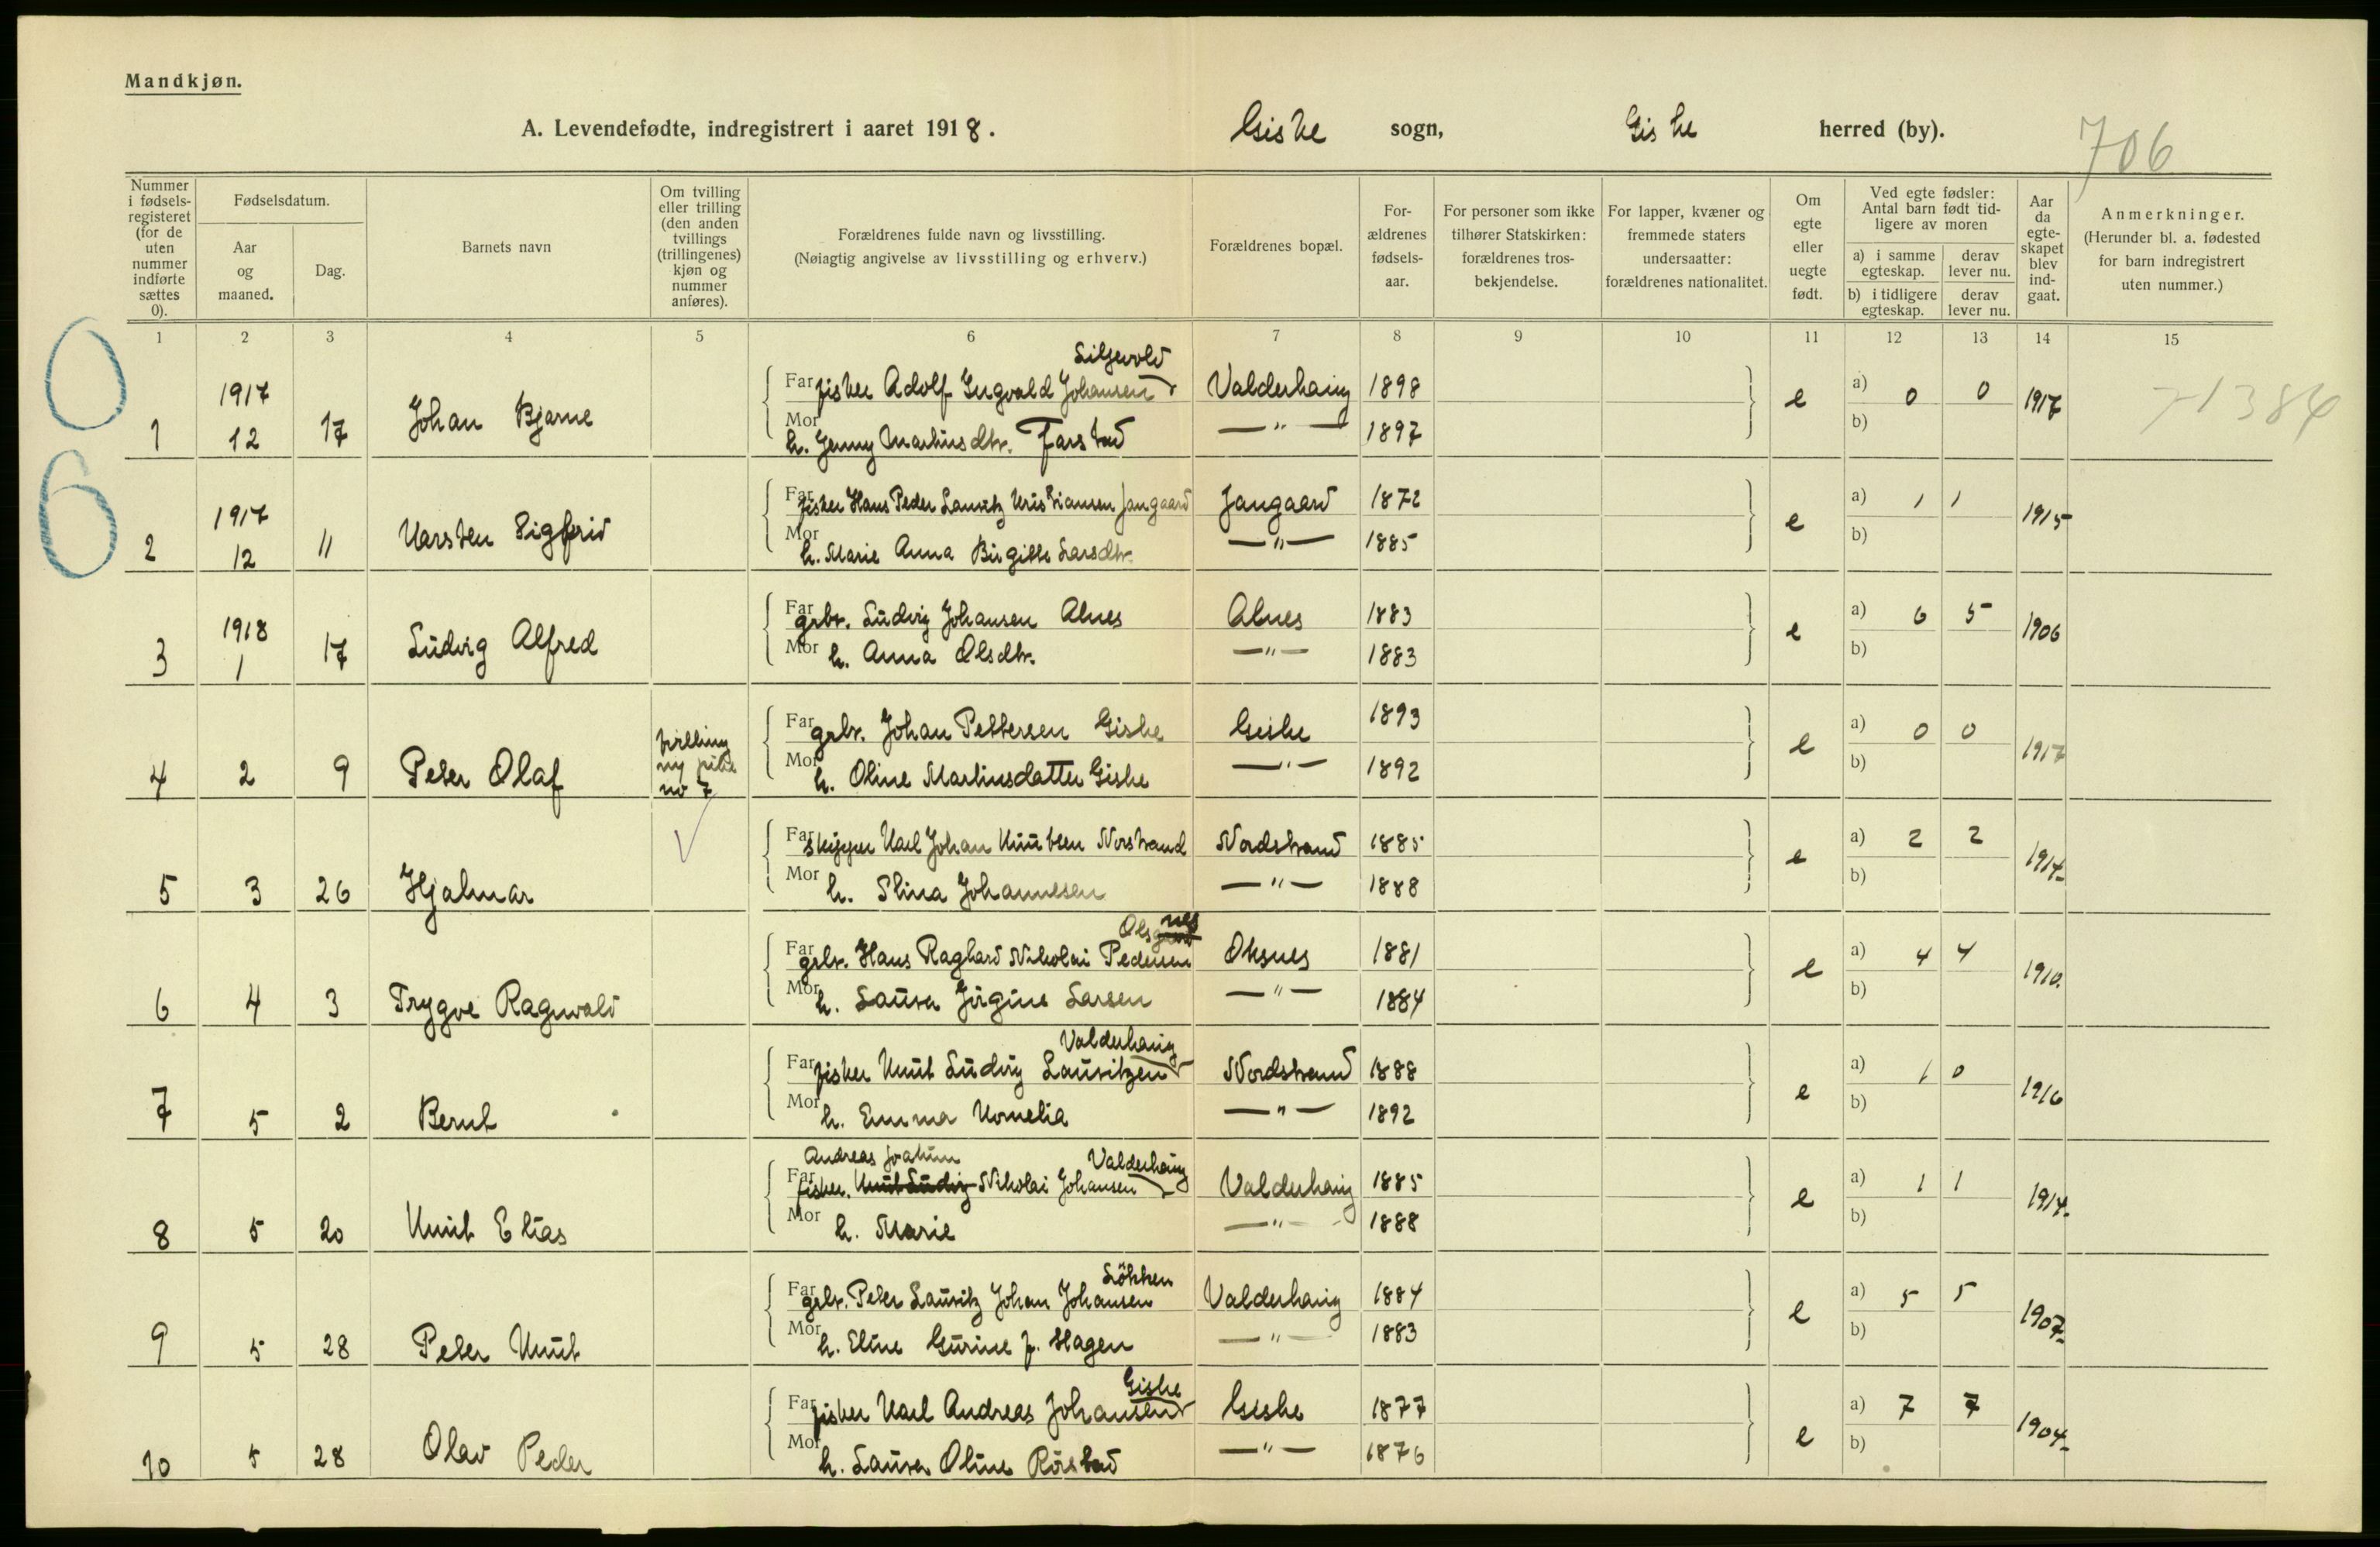 Mandkjøn.
A. Levendefødte, indregistrert i aaret 1918. Giske sogn, Giske herred (by). 706
Nummer i fødsels-registeret (for de uten nummer indførte sættes 0).
Fødselsdatum.
Aar og maaned.
Dag.
Barnets navn
Om tvilling eller trilling (den anden tvillings (trillingenes) kjøn og nummer anføres).
Forældrenes fulde navn og livsstilling.
(Nøiagtig angivelse av livsstilling og erhverv.)
Forældrenes bopæl.
For-ældrenes fødsels-aar.
For personer som ikke tilhører Statskirken: forældrenes tros-bekjendelse.
For lapper, kvæner og fremmede staters undersaatter: forældrenes nationalitet.
Om egte eller uegte født.
Ved egte fødsler: Antal barn født tid-ligere av moren
a) i samme egteskap. derav lever nu.
b) i tidligere egteskap. derav lever nu.
Aar da egte-skapet blev ind-gaat.
Anmerkninger.
(Herunder bl. a. fødested for barn indregistrert uten nummer.)
1 2 3 4 5 6 7 8 9 10 11 12 13 14 15
0
6
Siljevold
1 1917 12 17 Johan Bjarne Far fisker Adolf Ingvald Johansen Valderhaug 1898 e a) 0 0 1917 71384
Mor h. Jenny Martinsdtr. Farstad —"— 1897 b)
2 1917 12 11 Karsten Sigfrid Far fisker Hans Peder Lauritz Kristiansen Jangaard Jangaard 1872 e a) 1 1 1915
Mor h. Marie Anna Birgitte Larsdtr. —"— 1885 b)
3 1918 1 17 Ludvig Alfred Far grbr. Ludvig Johansen Alnes Alnes 1883 e a) 6 5 1906
Mor h. Anna Olsdtr. —"— 1883 b)
4 2 9 Peter Olaf tvilling m pike no 7 Far grbr. Johan Pettersen Giske Giske 1893 e a) 0 0 1917
Mor h. Oline Martinsdatter Giske —"— 1892 b)
5 3 26 Hjalmar Far skipper Karl Johan Knutsen Norstrand Nordstrand 1885 e a) 2 2 1914
Mor h. Stina Johannesen —"— 1888 b)
6 4 3 Trygve Ragnvald Far grbr. Hans Raghard Nikolai Pedersen Oksnes 1881 e a) 4 4 1910.
Mor h. Laura Jørgine Larsen —"— 1884 b)
Valderhaug
7 5 2 Bernt Far fisker Knut Ludvig Lauritzen Nordstrand 1888 e a) 1 0 1916
Mor h. Emma Kornelia —"— 1892 b)
Andreas Joakim Valderhaug
8 5 20 Knut Elias Far fisker. Knut Ludvig Nikolai Johansen Valderhaug 1885 e a) 1 1 1914
Mor h. Marie —"— 1888 b)
Løkken
9 5 28 Peter Knut Far grbr. Peter Lauritz Johan Johansen Valderhaug 1884 e a) 5 5 1907
Mor h. Eline Gurine f. Hagen —"— 1883 b)
Giske
10 5 28 Olav Peder Far fisker Karl Andreas Johansen Giske 1877 e a) 7 7 1904
Mor h. Laura Oline Rørstad —"— 1876 b)